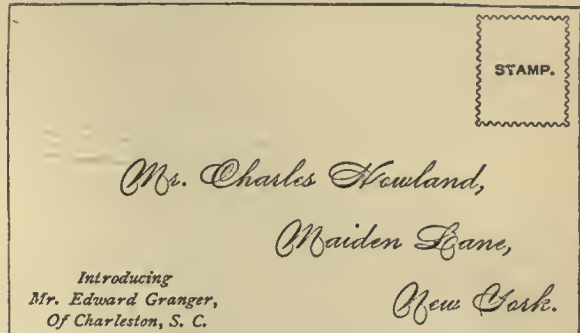 STAMP.
Mr. Charles Howland,
Maiden Lane,
New York.
Introducing
Mr. Edward Granger,
Of Charleston, S. C.